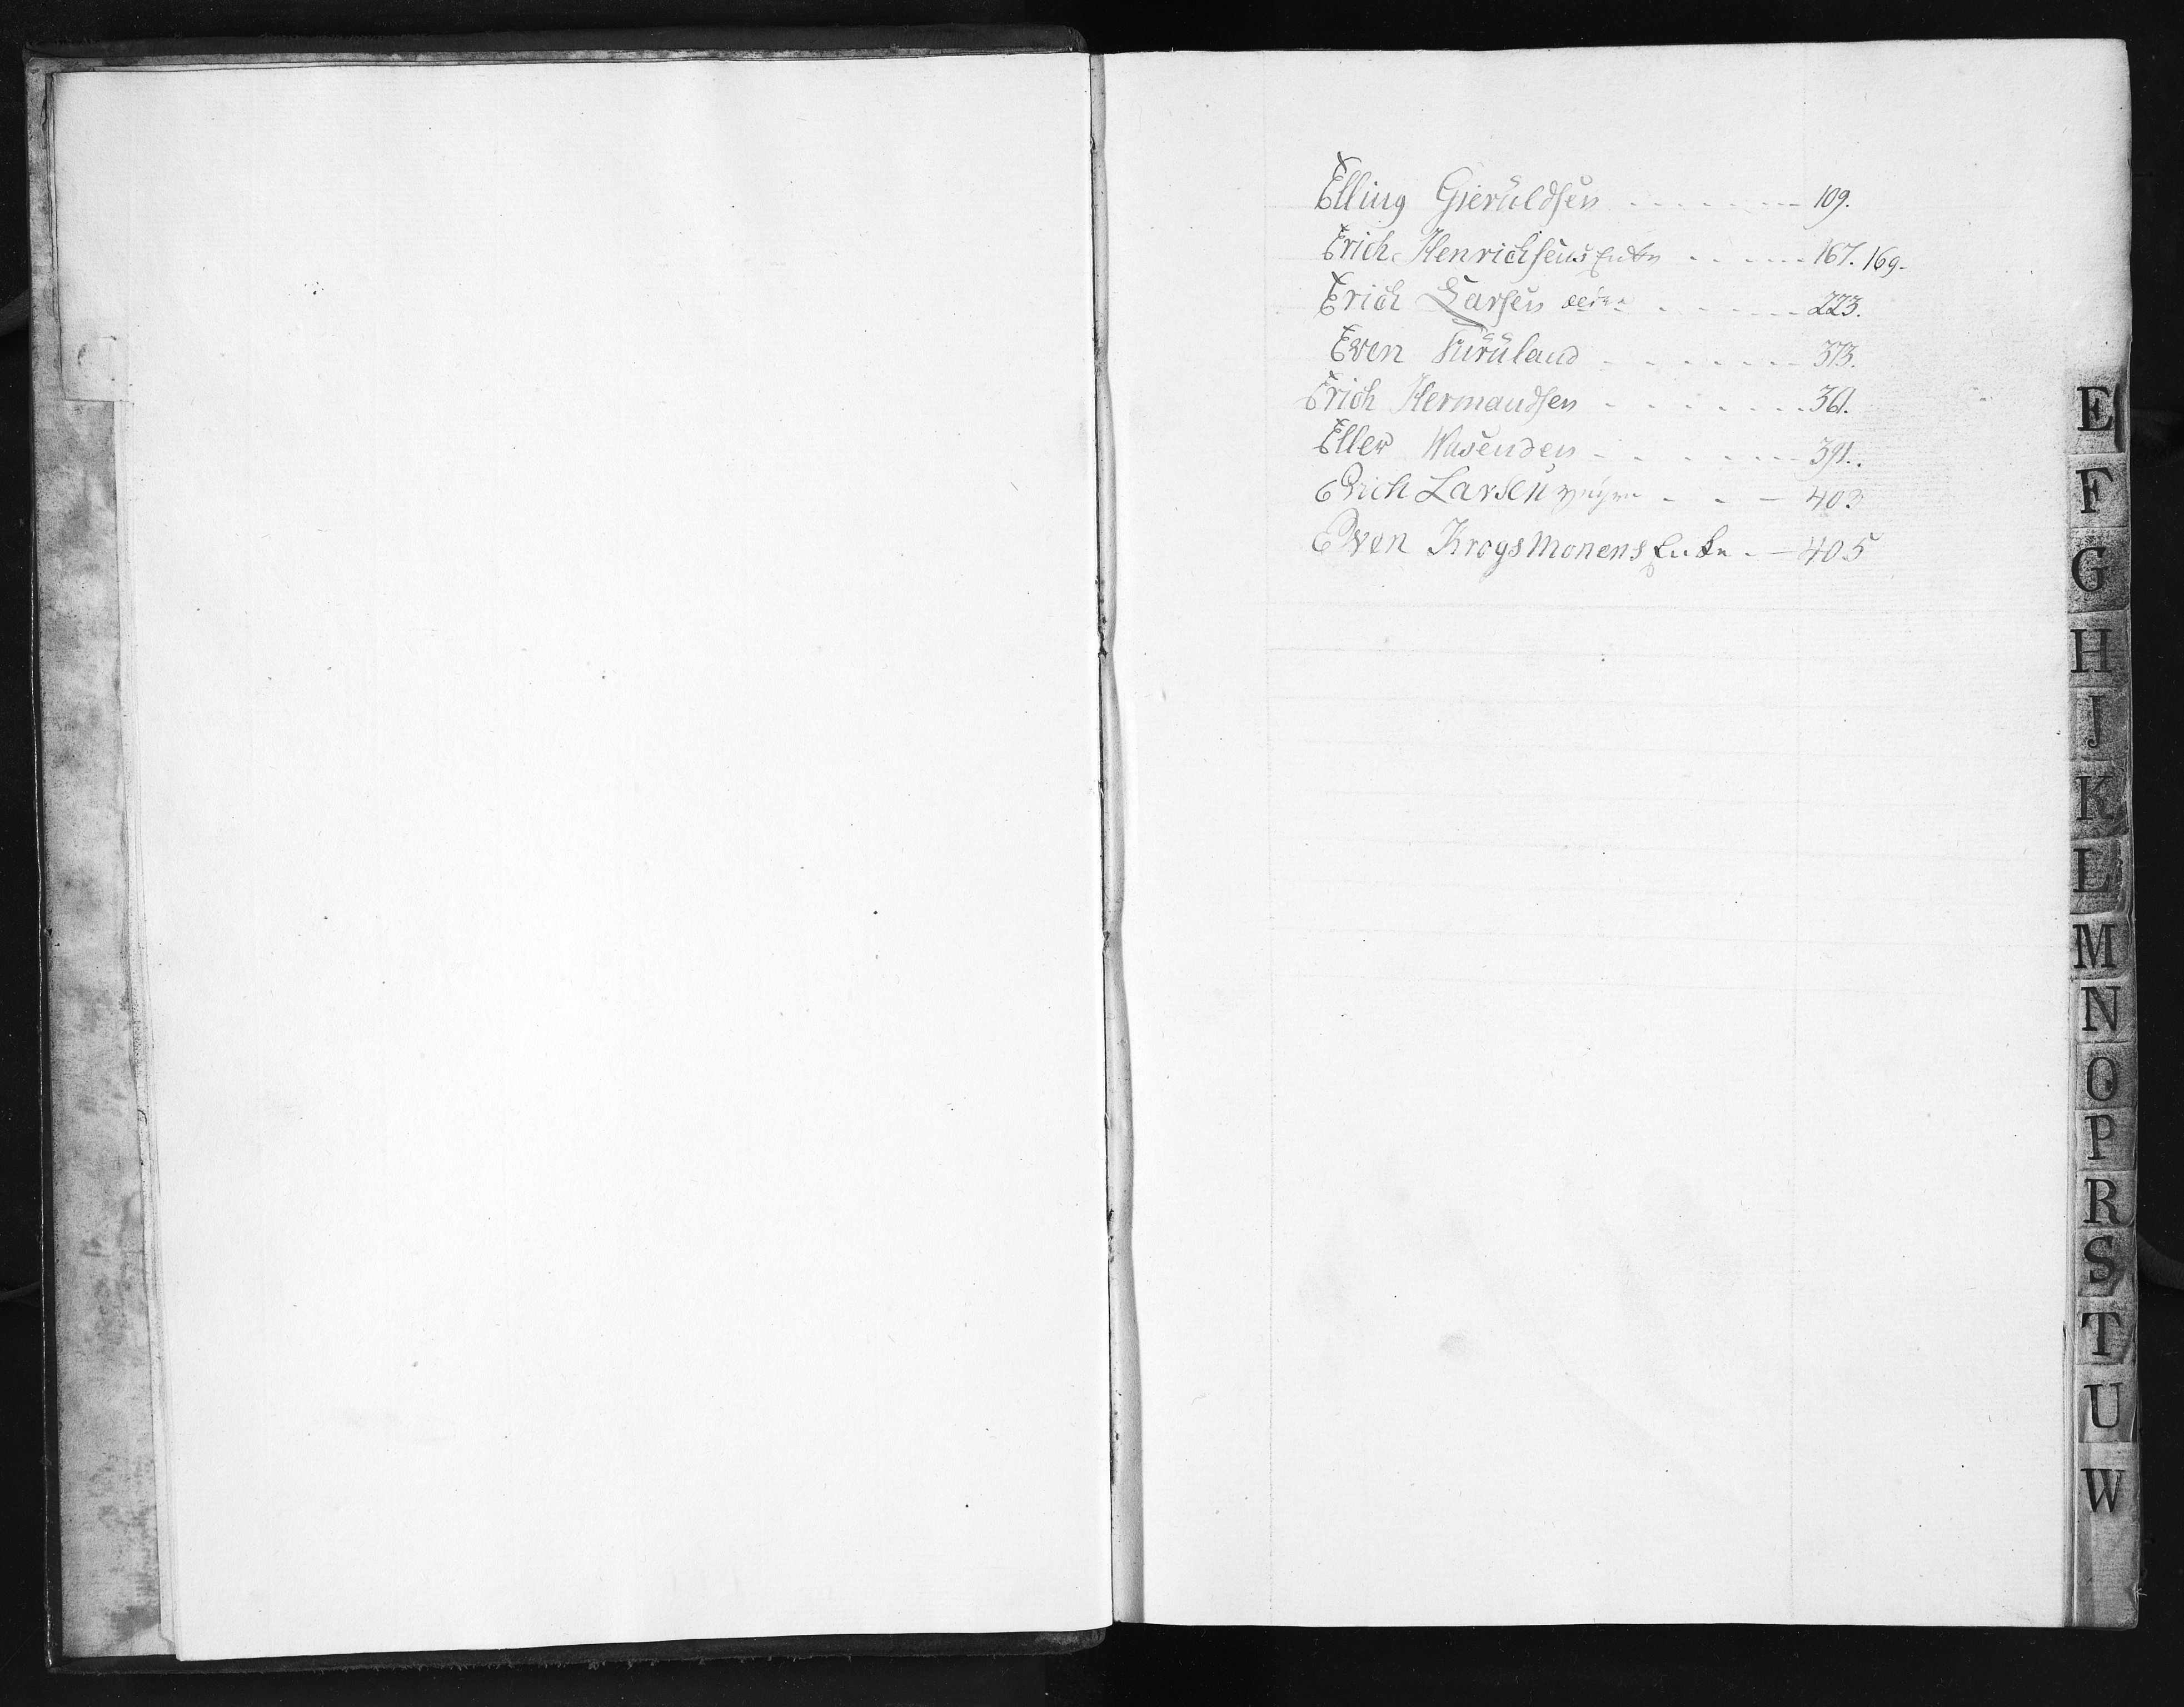 Elling Gieruldsen - - - - - - 109.
Erich Henrichsens Enke - - - - - 167. 169.
Erich Larsen - - - - - - 223.
Even - - - - - - 373.
Erich Hermandsen - - - - - - 361.
Eller Wasenden - - - - - - 391.
Erich Larsen - - - 403
Even Krogsmonens Enke - - 405
E
F
G
H
J
K
L
M
N
O
P
R
S
T
U
W